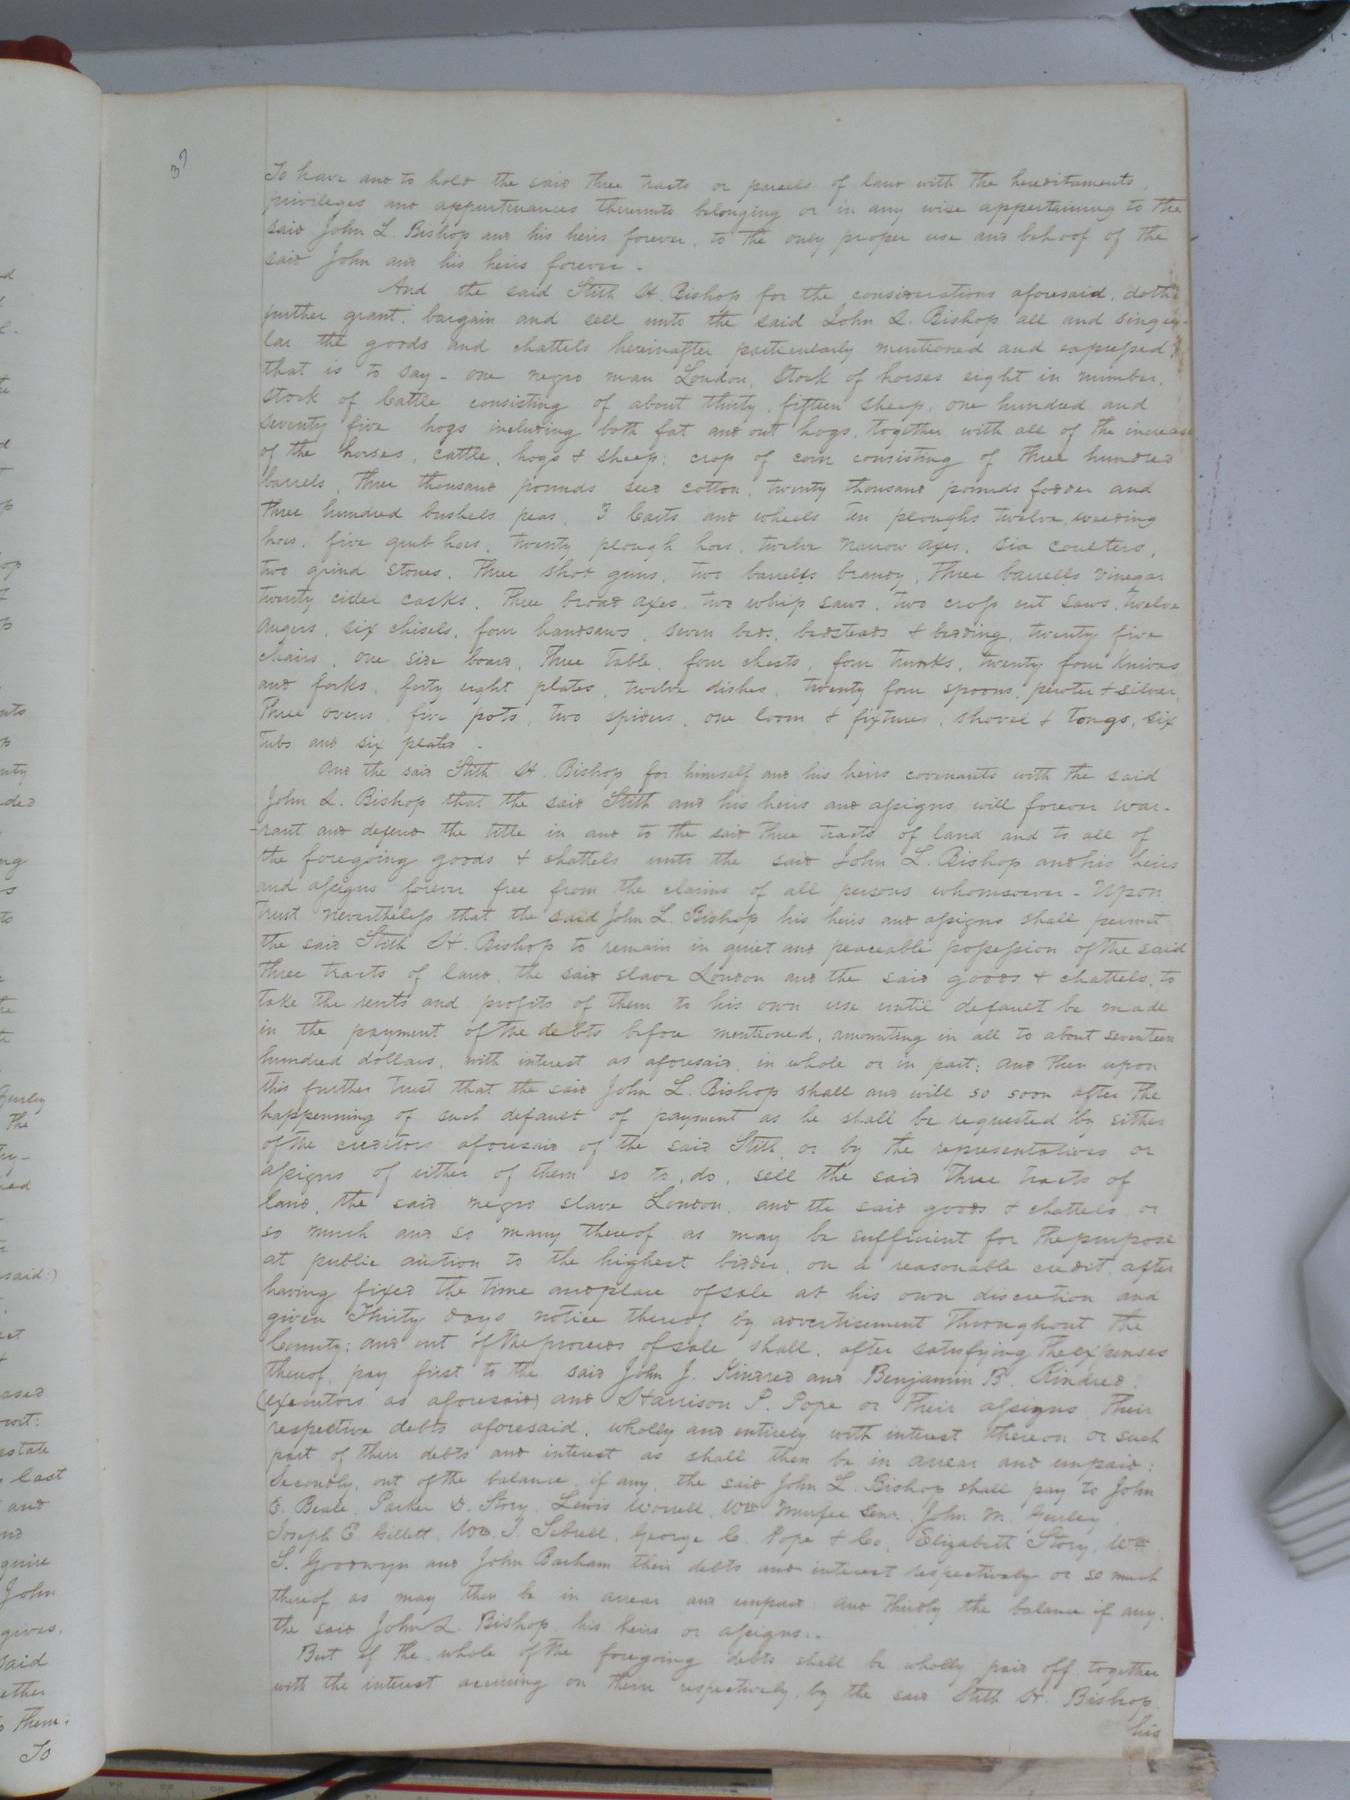 37
To have and to hold the said three tracts or parcels of land with the hereditaments,
privileges and appurtenances thereunto belonging or in any wise appertaining to the
said John L. Bishop and his heirs forever, to the only proper use and behoof of the
said John and his heirs forever -
And the said Stith H. Bishop for the considerations aforesaid, doth
further grant, bargain and sell unto the said John L. Bishop all and singu-
lar the goods and chattels hereinafter particularly mentioned and expressed
that is to say - one negro man London, Stock of horses eight in number,
Stock of Cattle consisting of about thirty, fifteen sheep, one hundred and
seventy five hogs including both fat and out hogs, together with all of the increase
of the horses, cattle, hogs & sheep; crop of corn consisting of three hundred
barrels, three thousand pounds seed cotton, twenty thousand pounds fodder and
three hundred bushels peas, 3 Carts and wheels ten ploughs twelve weeding
hoes, five grub hoes, twenty plough hoes, twelve narrow axes, six coulters,
two grind stones, three shot guns, two barrells brandy, three barrells vinegar
twenty cider casks, three broad axes, two whip saws, two crop cut saws, twelve
augers, six chisels, four handsaws, seven beds, bedsteads & bedding, twenty five
chairs, one side board, three table, four chests, four trunks, twenty four Knives
and forks, forty eight plates, twelve dishes, twenty four spoons, pewter & silver,
three ovens, five pots, two spiders, one loom & fixtures, shovel & tongs, six
tubs and six plates -
And the said Stith H. Bishop for himself and his heirs covenants with the said
John L. Bishop that the said Stith and his heirs and assigns will forever war-
-rant and defend the title in and to the said three tracts of land and to all of
the foregoing goods & chattels unto the said John L. Bishop and his heirs
and assigns forever free from the claims of all persons whomsoever - Upon
trust nevertheless that the said John L. Bishop his heirs and assigns shall permit
the said Stith H. Bishop to remain in quiet and peaceable possession of the said
three tracts of land, the said slave London and the said goods & chattels, to
take the rents and profits of them to his own use until default be made
in the payment of the debts before mentioned, amounting in all to about seventeen
hundred dollars, with interest as aforesaid, in whole or in part; and then upon
this further trust that the said John L. Bishop shall and will so soon after the
happenning of such default of payment as he shall be requested by either
of the creditors aforesaid of the said Stith, or by the representatives or
assigns of either of them so to do, sell the said three tracts of
land, the said negro slave London, and the said goods & chattels or
so much and so many thereof as may be sufficient for the purpose
at public auction to the highest bidder, on a reasonable credit, after
having fixed the time and place of sale at his own discretion and
given Thirty days notice thereof by advertisement throughout the
County; and out of the proceeds of sale shall, after satisfying the expenses
thereof, pay first to the said John J. Kindred and Benjamin B. Kindred,
(executors as aforesaid) and Harrison P. Pope or their assigns their
respective debts aforesaid, wholly and entirely with interest thereon or such
part of their debts and interest as shall then be in arrear and unpaid;
Secondly, out of the balance, if any, the said John L. Bishop shall pay to John
E. Beale, Parker D. Story, Lewis Worrell, Wm Murfee Senr, John M. Gurley,
Joseph E. Gillett, Wm. J. Sebrell, George C. Pope & Co, Elizabeth Story, Wm
S. Goodwyn and John Barham their debts and interest respectively or so much
thereof as may then be in arrear and unpaid and thirdly the balance if any,
the said John L. Bishop, his heirs or assigns.-
But if the whole of the foregoing debts shall be wholly paid off, together
with the interest accruing on them respectively, by the said Stith H. Bishop,
his